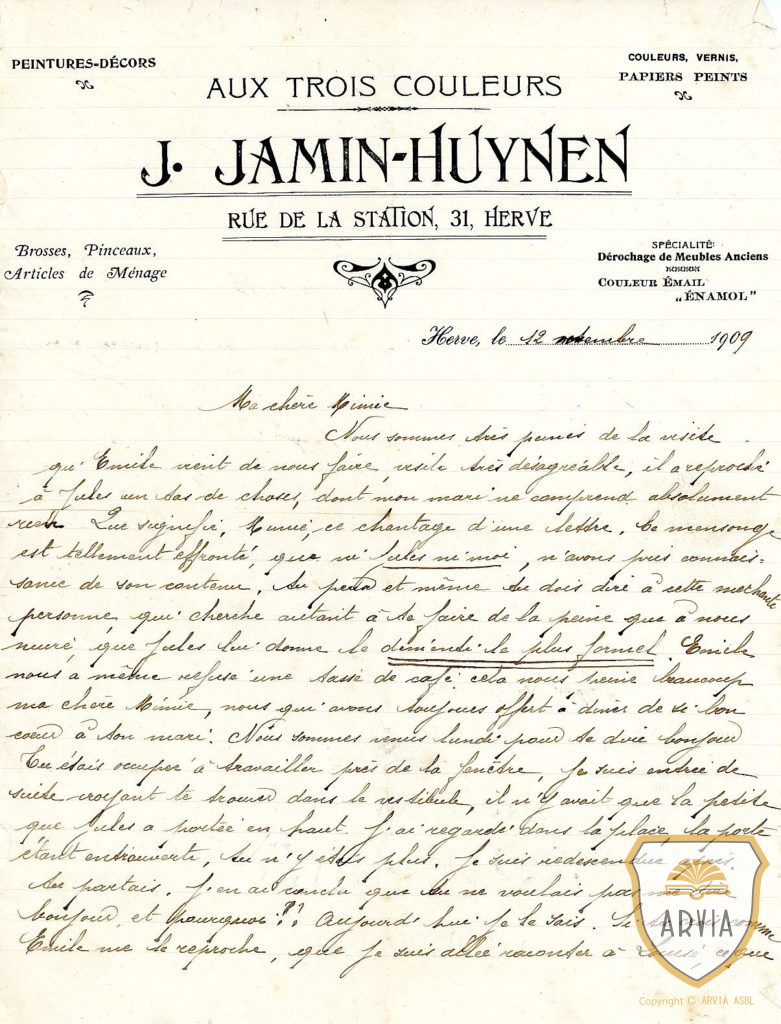 PEINTURES-DÉCORS
COULEURS, VERNIS,
PAPIERS PEINTS
AUX TROIS COULEURS
J. JAMIN-HUYNEN
RUE DE LA STATION, 31, HERVE
Brosses, Pinceaux,
Articles de Ménage
SPÉCIALITÉ:
Dérochage de Meubles Anciens
COULEUR ÉMAIL
„ÉNAMOL"
Herve, le 12 novembre 1909
Ma chère Mimie
Nous sommes très peinés de la visite
qu'Emile vient de nous faire, visite très désagréable, il a reproché
à Jules un tas de choses, dont mon mari ne comprend absolument
rien. Que signifie, Mimie, ce chantage d'une lettre. Ce mensonge
est tellement effronté, que ni Jules ni moi, n'avons pris connais-
sance de son contenu. Tu peux et même tu dois dire à cette méchante
personne, qui cherche autant à te faire de la peine que à nous
nuire, que Jules lui donne le démenti le plus formel. Emile
nous a même refusé une tasse de café cela nous peine beaucoup
ma chère Mimie, nous qui avons toujours offert à diner de si bon
coeur à ton mari. Nous sommes venus lundi pour te dire bonjour
Tu étais occupée à travailler près de la fenêtre, je suis entrée de
suite croyant te trouver dans le vestibule, il n'y avait que la petite
que Jules a portée en haut. J'ai regardé dans la place, la porte
étant entrouverte, tu n'y étais plus. Je suis redescendue
tu partais. J'en ai conclu que tu ne voulais pas me dire
bonjour et pourquoi ?? Aujourd'hui je le sais. Si comme
Emile me le reproche, que je suis allée raconter à Louise, ce que
ARVIA
Copyright © ARVIA ASBL